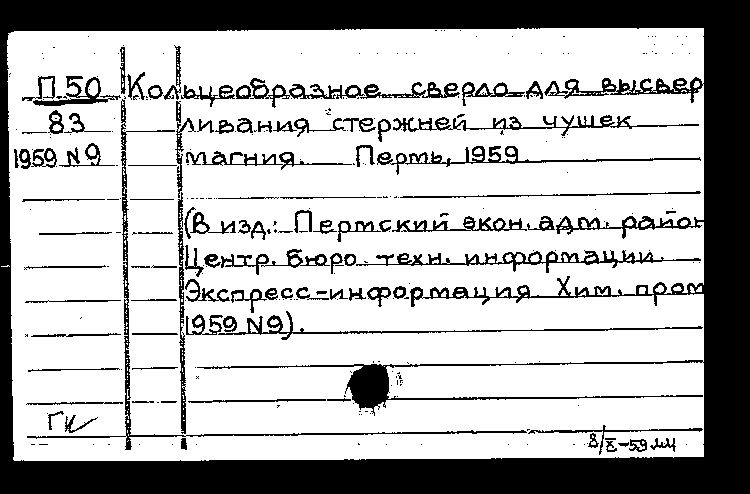 П.50 Кольцеобразное сверло для высвер
83 ливания стержней из чушек
1959 N9 магния. Пермь, 1959.
(В изд.: Пермский экон. адм. район
Центр. бюро техн. информации.
Экспресс-информация Хим. пром
1959 N9).
ГК
8/X-59